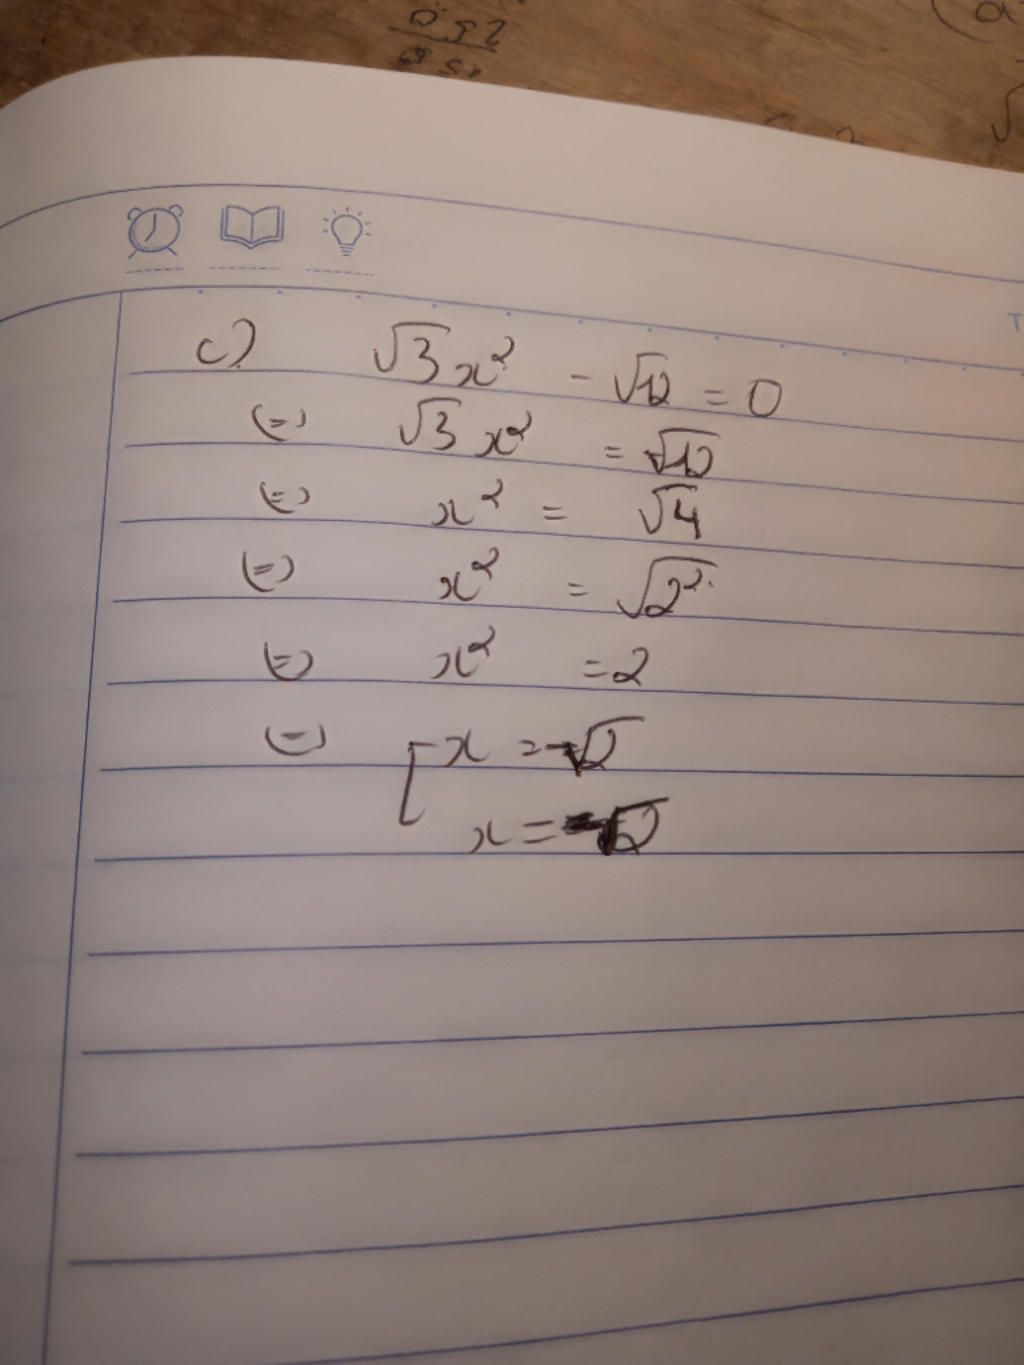 c) √3x² - √12 = 0
(=) √3x² = √12
(=) x² = √4
(=) x² = √2²
(=) x² = 2
(=) [x = -√2
x = -√2